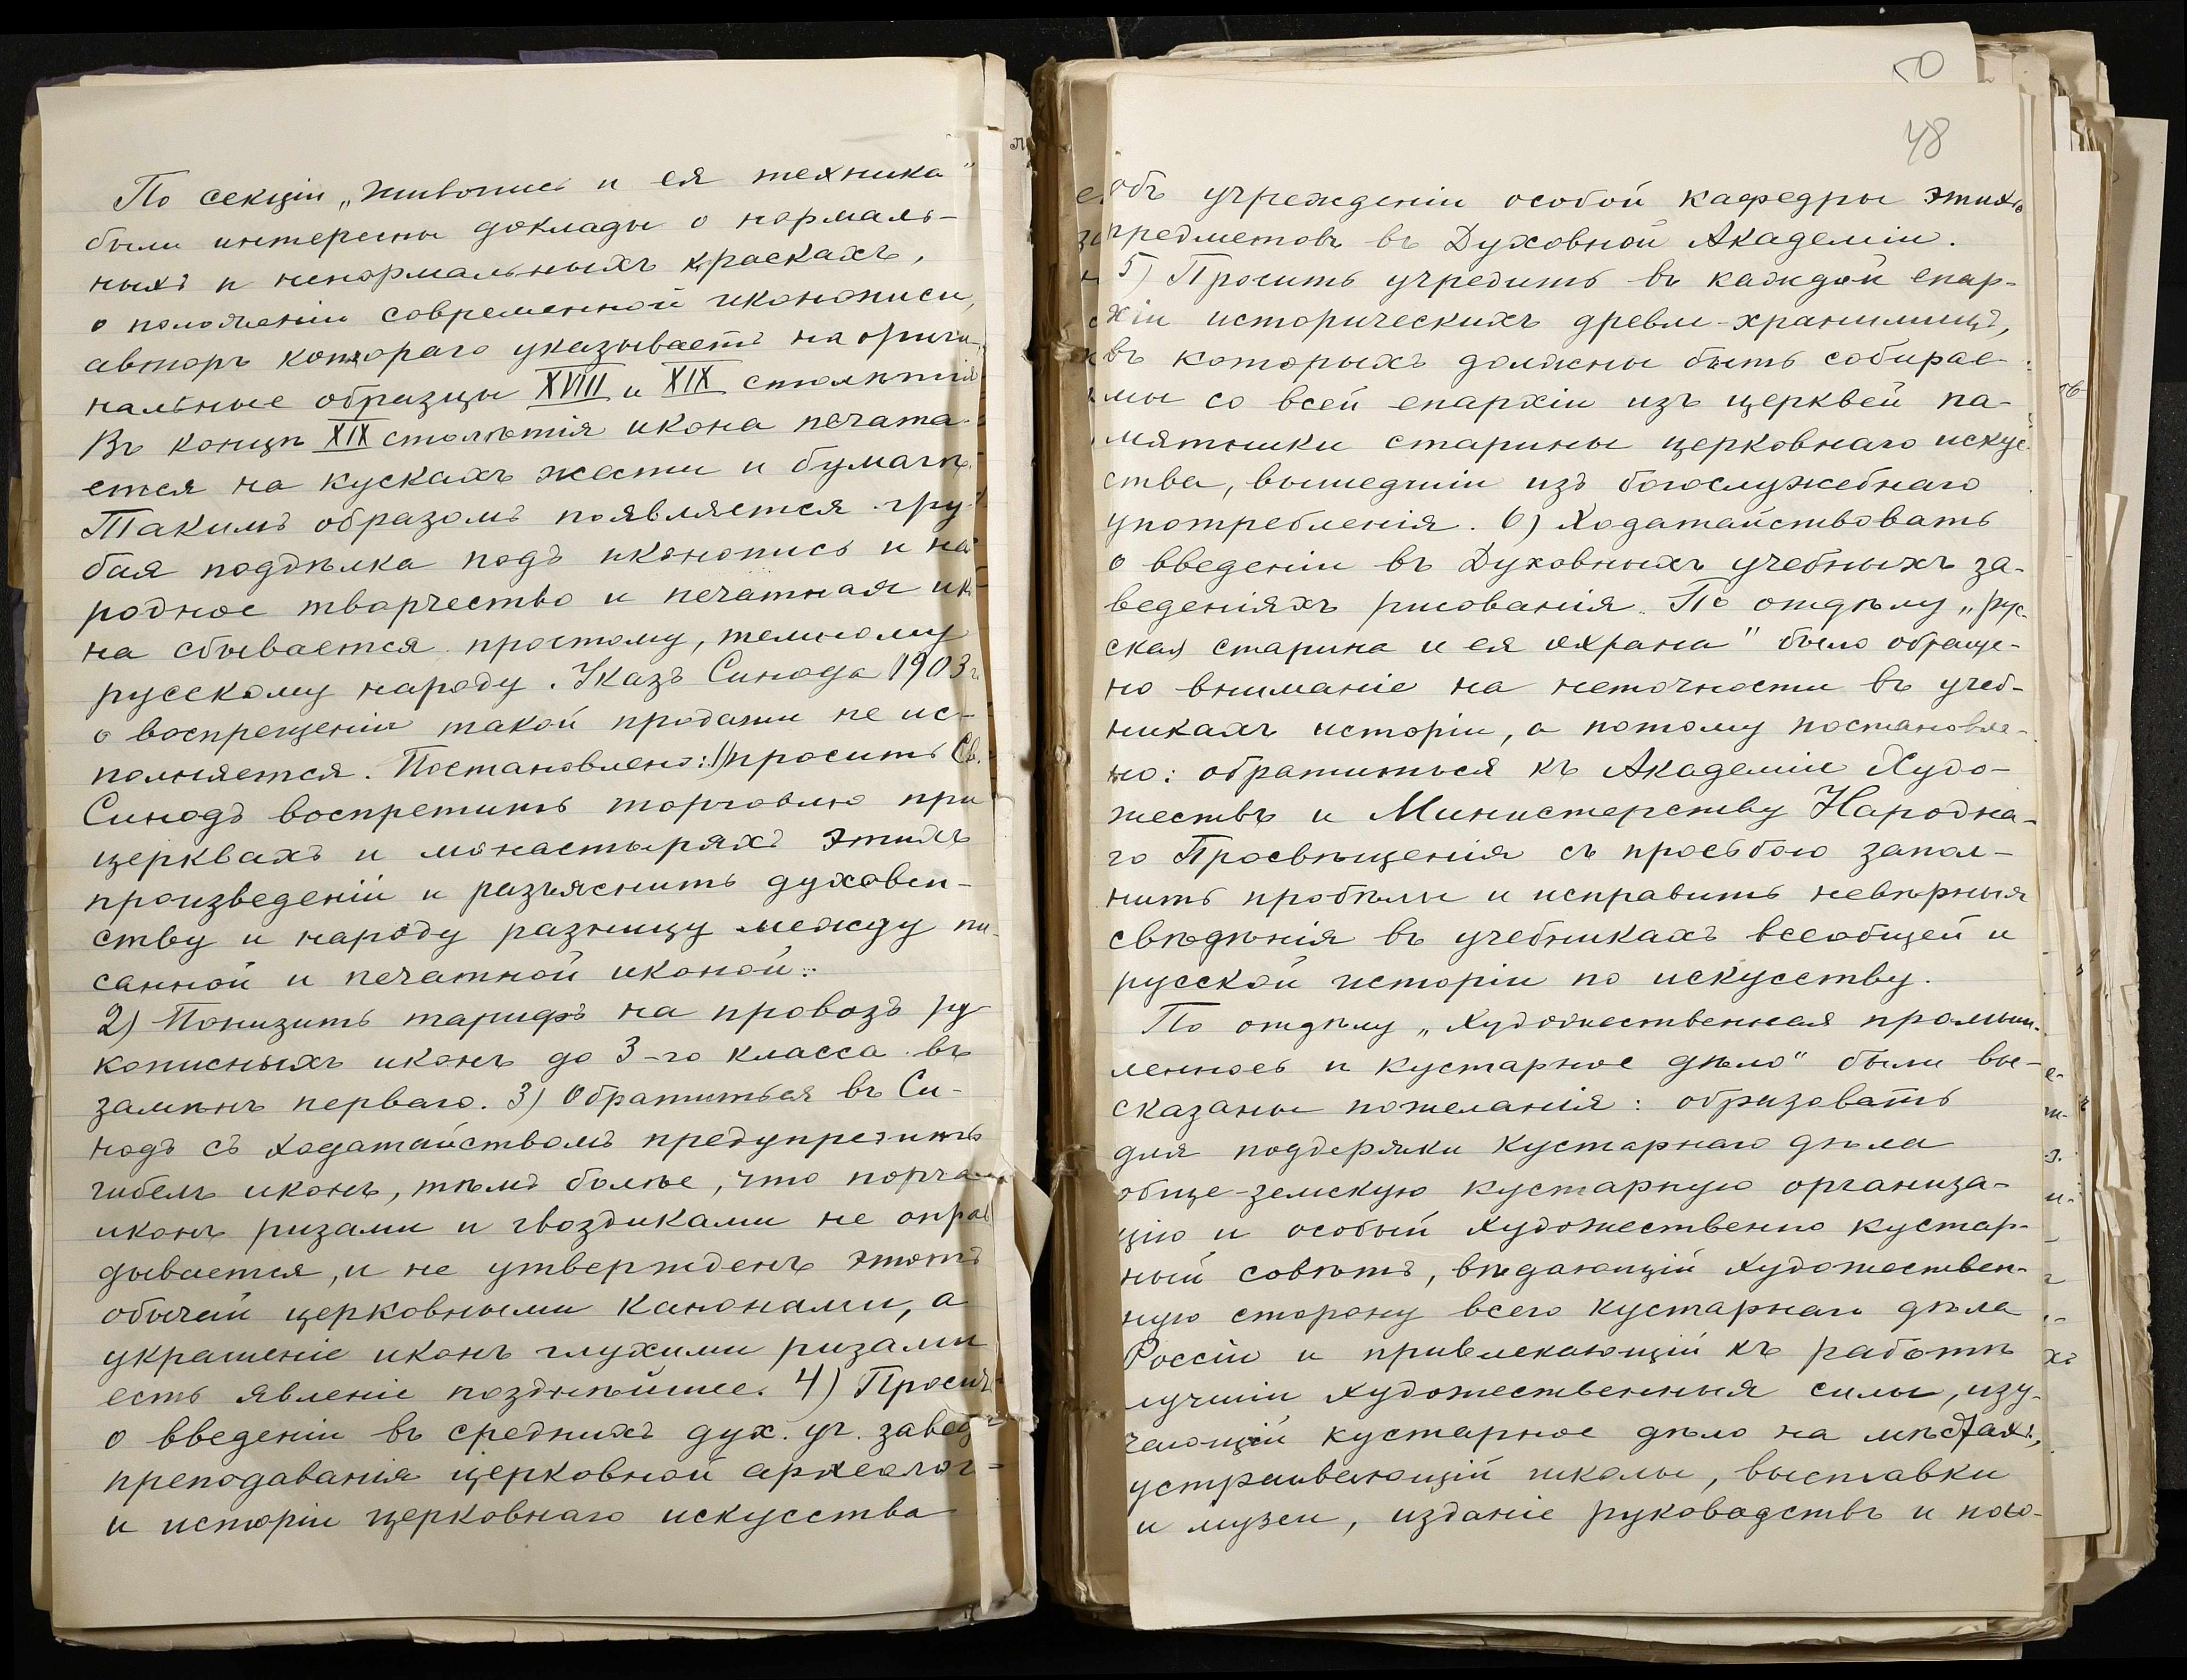 По секціи „Живопись и ея техника"
были интересны доклады о нормаль-
ныхъ и ненормальныхъ краскахъ,
о положеніи современной иконописи,
авторъ котораго указываетъ на ориги-
нальные образцы XVIII и XIX столѣтія
Въ концѣ XIX столѣтія икона печата-
ется на кускахъ жести и бумагѣ.
Такимъ образомъ появляется гру-
бая поддѣлка подъ иконопись и на-
родное творчество и печатная ико-
на сбывается простому, темному
русскому народу. Указъ Синода 1903 г.
о воспрещеніи такой продажи не ис-
полняется. Постановлено: 1) просить Св.
Синодъ воспретить торговлю при
церквахъ и монастыряхъ этихъ
произведеній и разъяснить духовен-
ству и народу разницу между пи-
санной и печатной иконой.
2) Понизить тарифъ на провозъ ру
кописныхъ иконъ до 3-го класса въ
замѣнъ перваго. 3) Обратиться въ Си-
нодъ съ ходатайствомъ предупредить
гибель иконъ, тѣмъ болѣе, что порча
иконъ ризами и гвоздиками не оправ
дывается, и не утвержденъ этотъ
обычай церковными канонами, а
украшеніе иконъ глухими ризами
есть явленіе позднѣйшее. 4) Просить
о введеніи въ среднихъ дух. уч. завед
преподаванія церковной археолог-
и исторіи церковнаго искусства
50
48
объ учрежденіи особой кафедры этихъ
предметовъ въ Духовной Академіи.
5) Просить учредить въ каждой епар-
хіи историческихъ древле-хранилищъ,
въ которыхъ должны быть собирае-
мы со всей епархіи изъ церквей па-
мятники старины церковнаго искус-
ства, вышедшіи изъ богослужебнаго
употребленія. 6) Ходатайствовать
о введеніи въ Духовныхъ учебныхъ за-
веденіяхъ рисованія. По отдѣлу „рус-
ская старина и ея охрана" было обраще-
но вниманіе на неточности въ учеб-
никахъ исторіи, а потому постановле-
но: обратиться къ Академіи Худо-
жествъ и Министерству Народна-
го Просвѣщенія съ просьбою запол-
нить пробѣлы и исправить невѣрныя
свѣдѣнія въ учебникахъ всеобщей и
русской исторіи по искусству.
По отдѣлу „Художественная промыш-
ленность и кустарное дѣло" были вы-
сказаны пожеланія: образовать
для поддержки кустарнаго дѣла
обще-земскую кустарную организа-
цію и особый художественно кустар-
ный совѣтъ, вѣдающій художествен-
ную сторону всего кустарнаго дѣла
Россіи и привлекающій къ работѣ
лучшіи художественныя силы, изу-
чающій кустарное дѣло на мѣстахъ,
устраивающій школы, выставки
и музеи, изданіе руководствъ и посо-